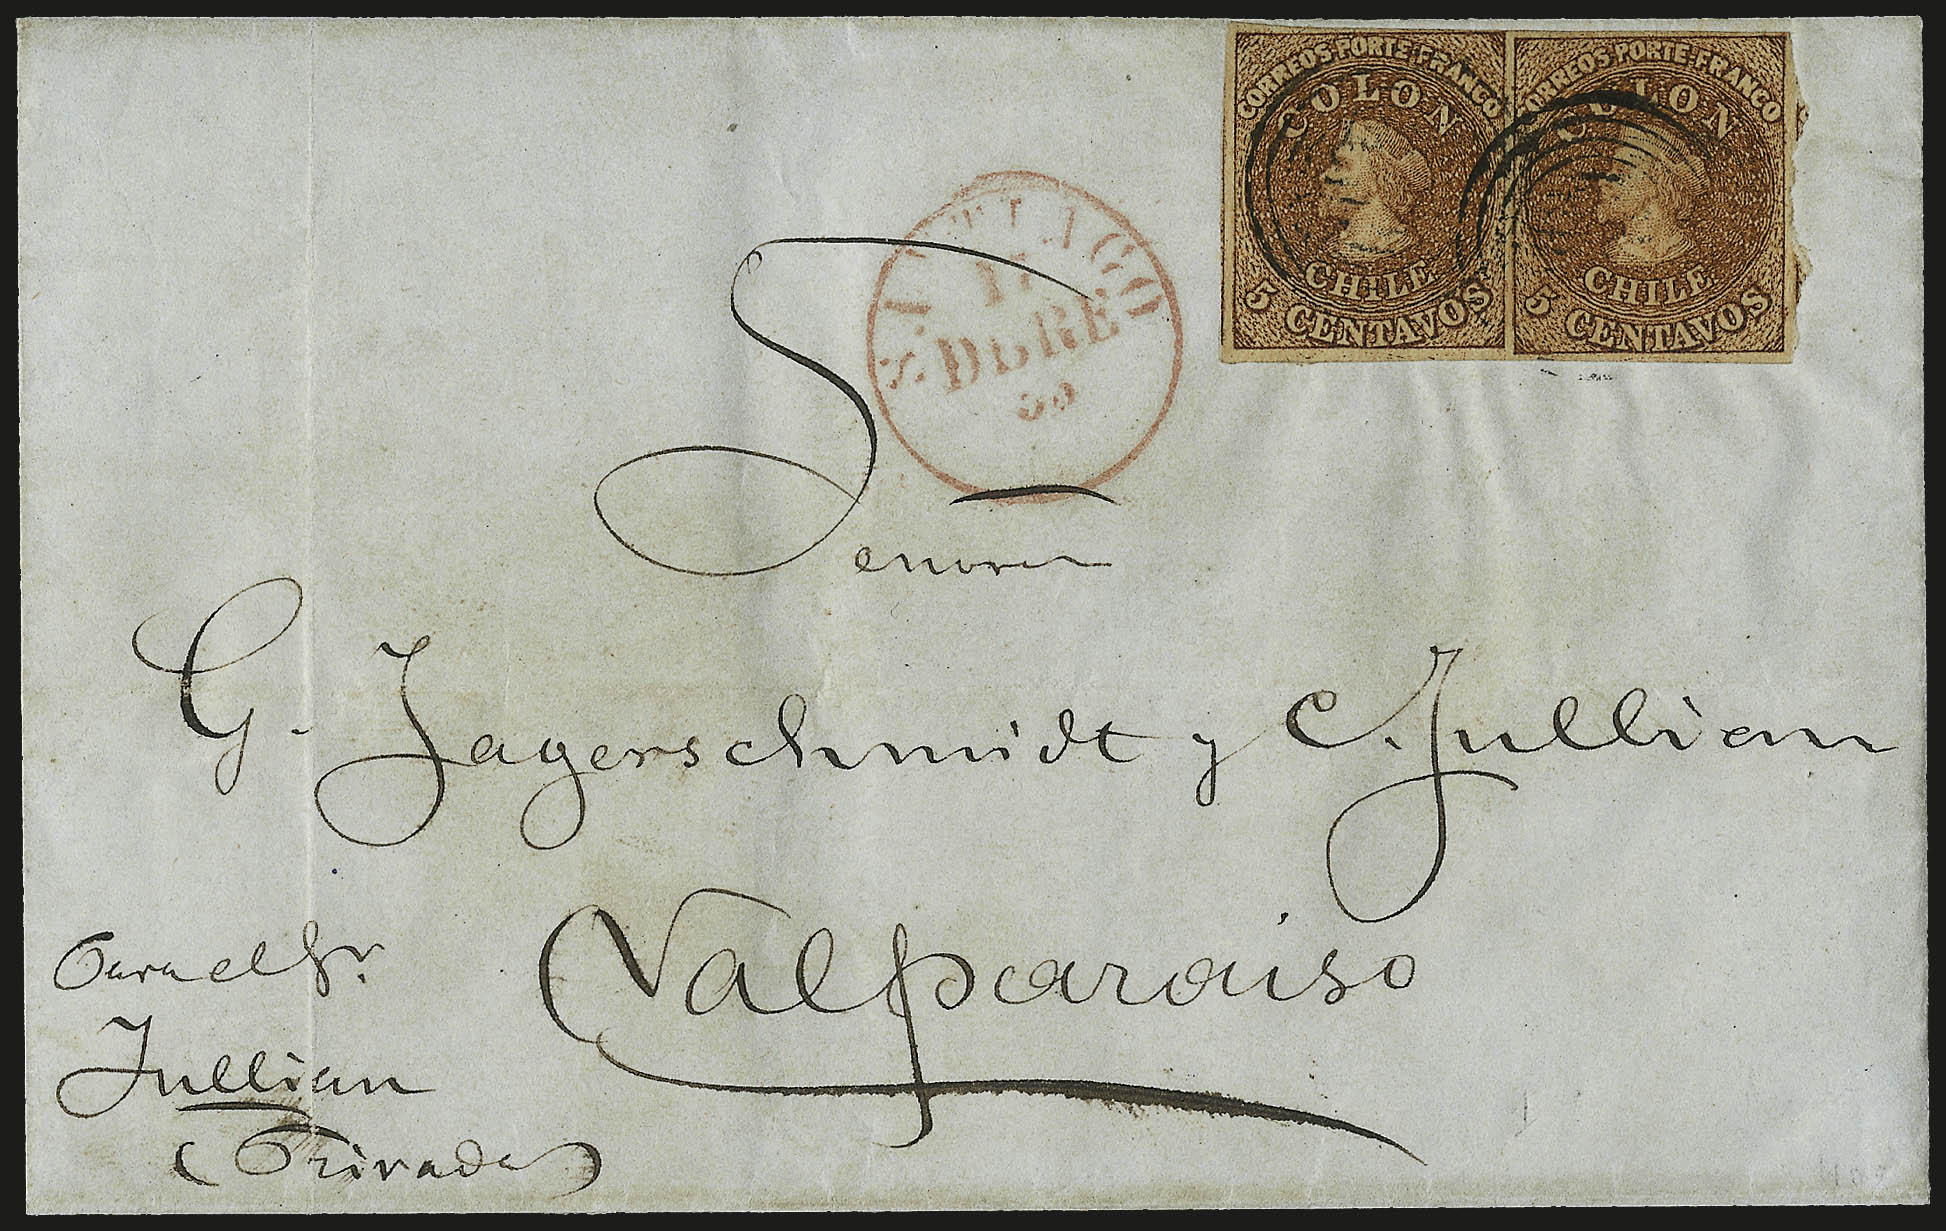 CORREOS PORTE FRANCO
COLON
CHILE
5 CENTAVOS
CORREOS PORTE FRANCO
COLON
CHILE
5 CENTAVOS
SANTIAGO
DBRE
Senores
G. Jagerschmidt y C. Jullian
Valparaiso
Para el Sr.
Jullian
(Privada)